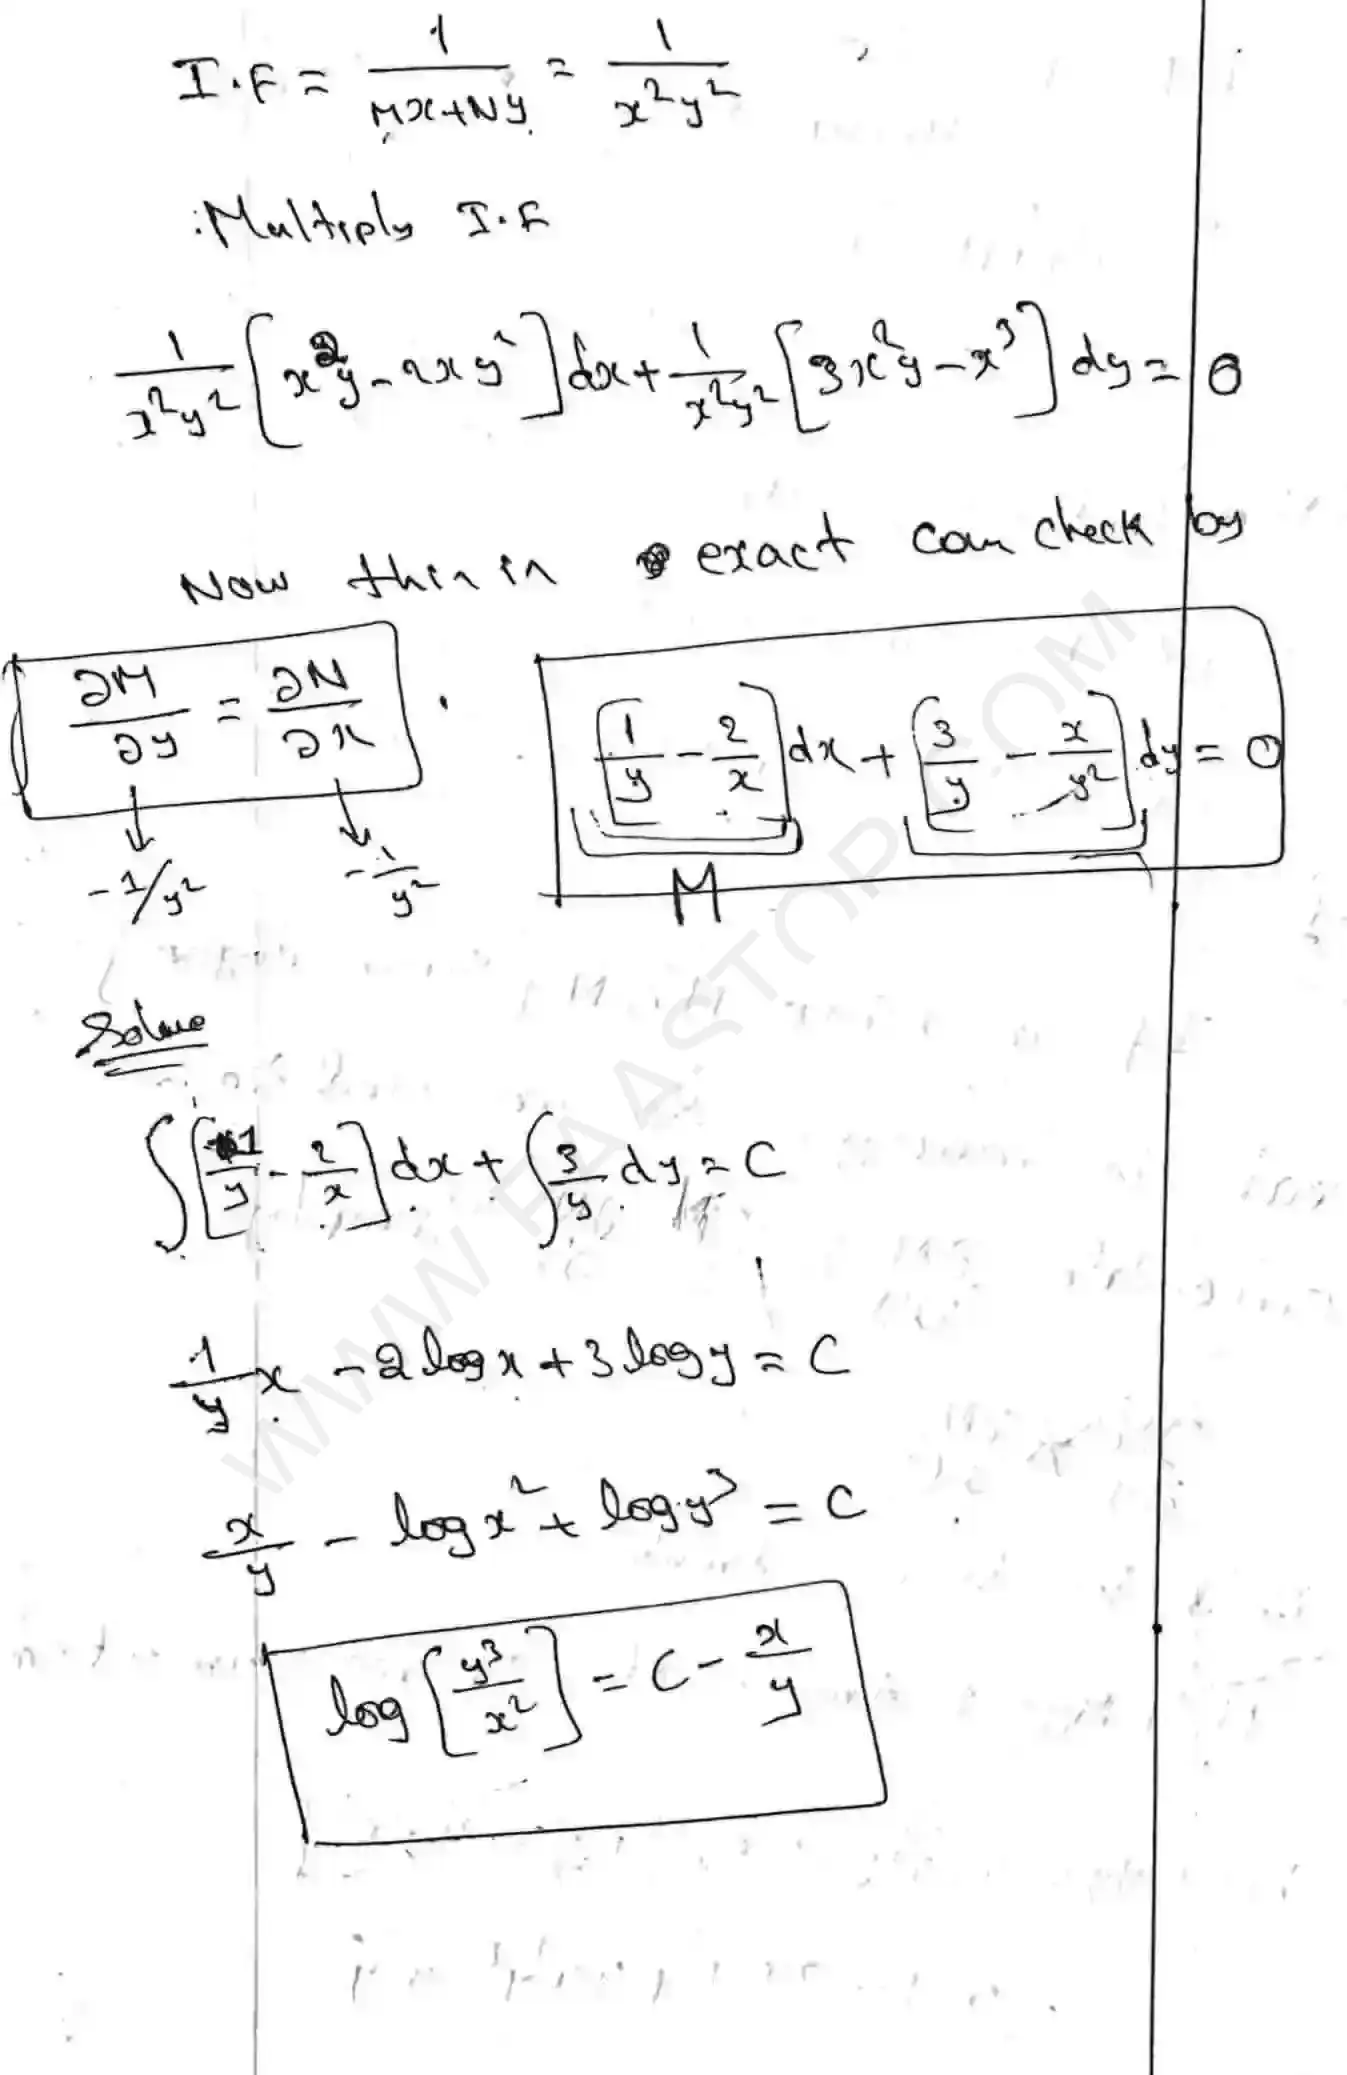 I.F = 1/(Mx+Ny) = 1/(x²y²)
:Multiply I.F
1/(x²y²) [x²y - 2xy²] dx + 1/(x²y²) [3x²y - x³] dy = 0
Now this is exact can check by
∂M/∂y = ∂N/∂x . [1/y - 2/x] dx + [3/y - x/y²] dy = 0
-1/y² -1/y² M
Solve
∫[1/y - 2/x] dx + ∫3/y dy = C
1/y x - 2 log x + 3 log y = C
x/y - log x² + log y³ = C
log [y³/x²] = C - x/y
WWW.FAASTOP.COM